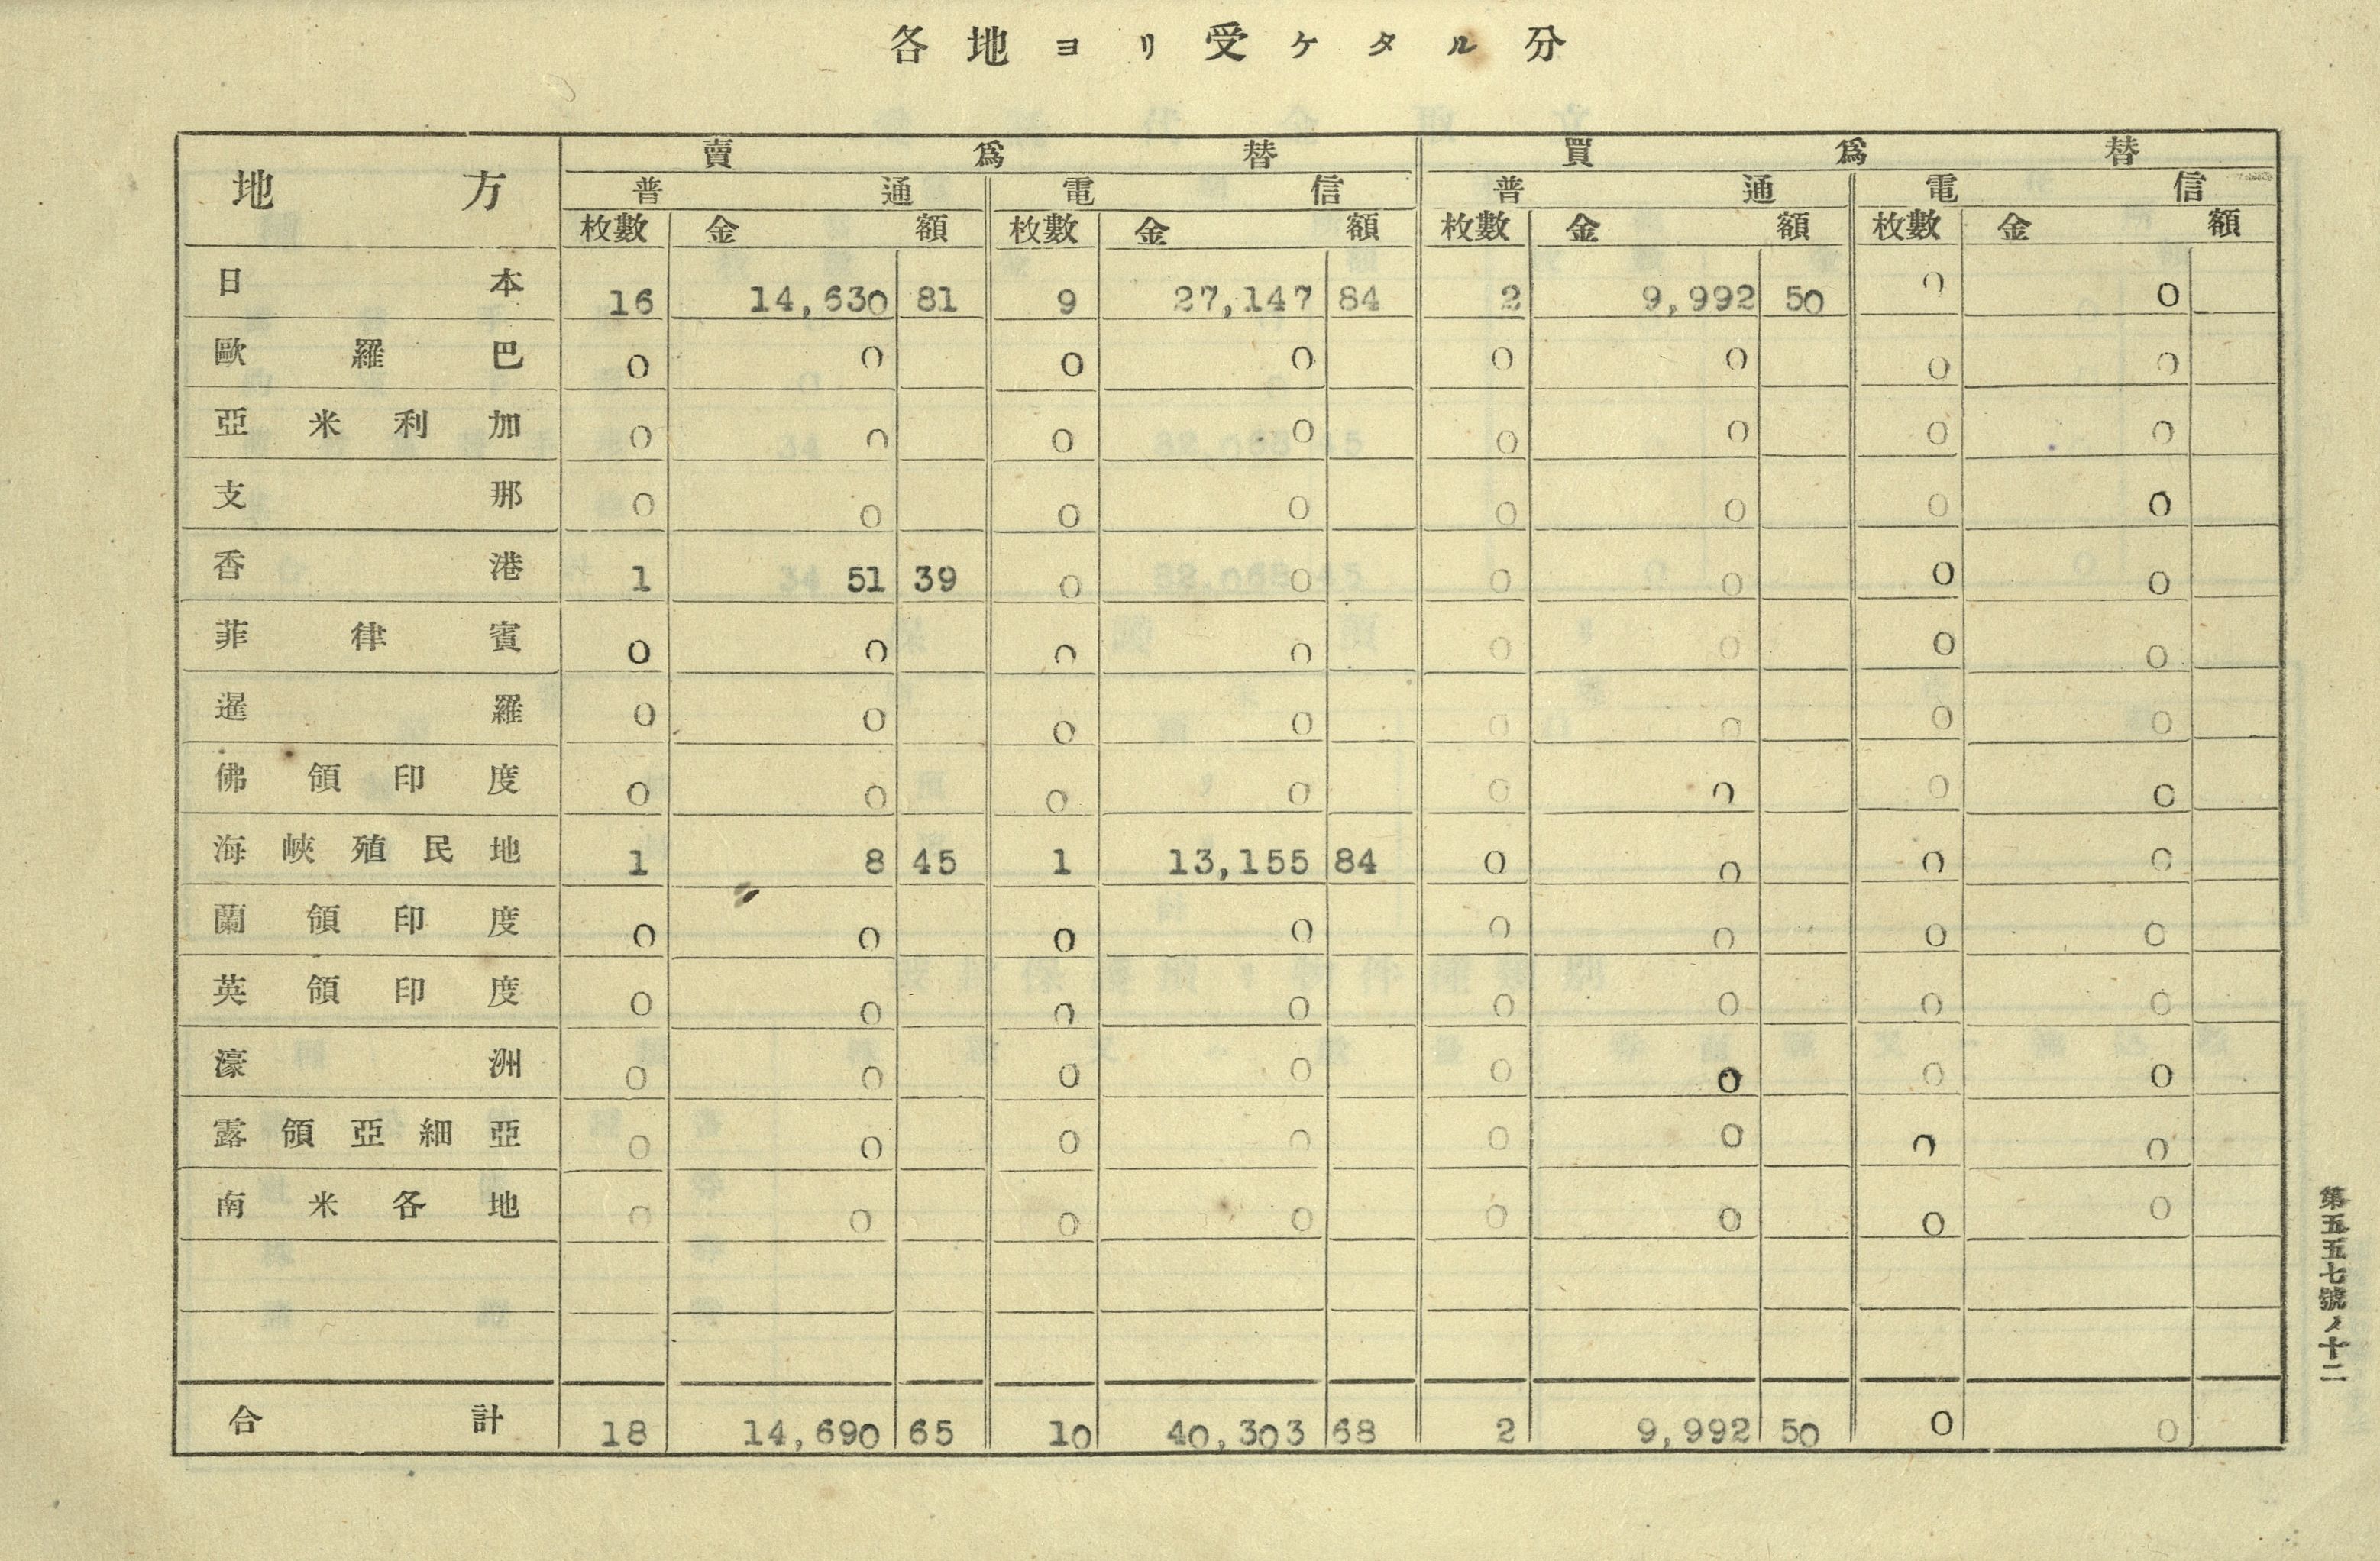 各地ヨリ受ケタル分
地方 賣爲替 買爲替
普通 電信 普通 電信
枚數 金額 枚數 金額 枚數 金額 枚數 金額
日本 16 14,630 81 9 27,147 84 2 9,992 50 0 0
歐羅巴 0 0 0 0 0 0 0 0
亞米利加 0 0 0 0 0 0 0 0
支那 0 0 0 0 0 0 0 0
香港 1 51 39 0 0 0 0 0 0
菲律賓 0 0 0 0 0 0 0 0
暹羅 0 0 0 0 0 0 0 0
佛領印度 0 0 0 0 0 0 0 0
海峽殖民地 1 8 45 1 13,155 84 0 0 0 0
蘭領印度 0 0 0 0 0 0 0 0
英領印度 0 0 0 0 0 0 0 0
濠洲 0 0 0 0 0 0 0 0
露領亞細亞 0 0 0 0 0 0 0 0
南米各地 0 0 0 0 0 0 0 0
合計 18 14,690 65 10 40,303 68 2 9,992 50 0 0
第五五七號ノ十二